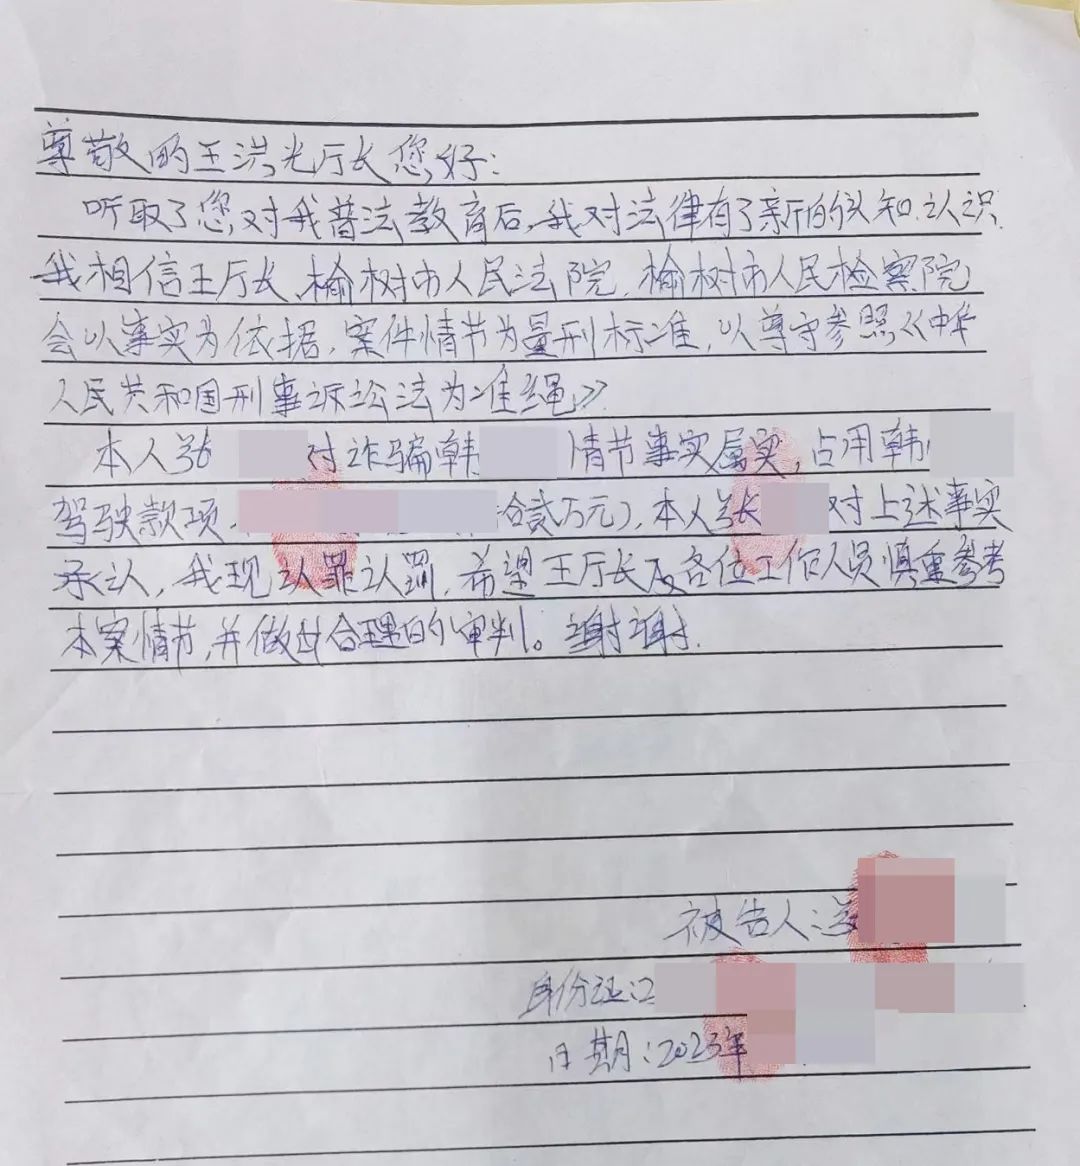 尊敬的王洪光厅长您好：
听取了您对我普法教育后，我对法律有了新的认知、认识
我相信王厅长、榆树市人民法院、榆树市人民检察院
会以事实为依据，案件情节为量刑标准，以尊守参照《中华
人民共和国刑事诉讼法为准绳》
本人张 对诈骗韩 情节事实属实，占用韩
驾驶款项， 拾贰万元），本人张 对上述事实
承认，我现认罪认罚，希望王厅长及各位工作人员慎重参考
本案情节，并做出合理的审判。谢谢.
被告人：张
身份证：2
日期：2023年